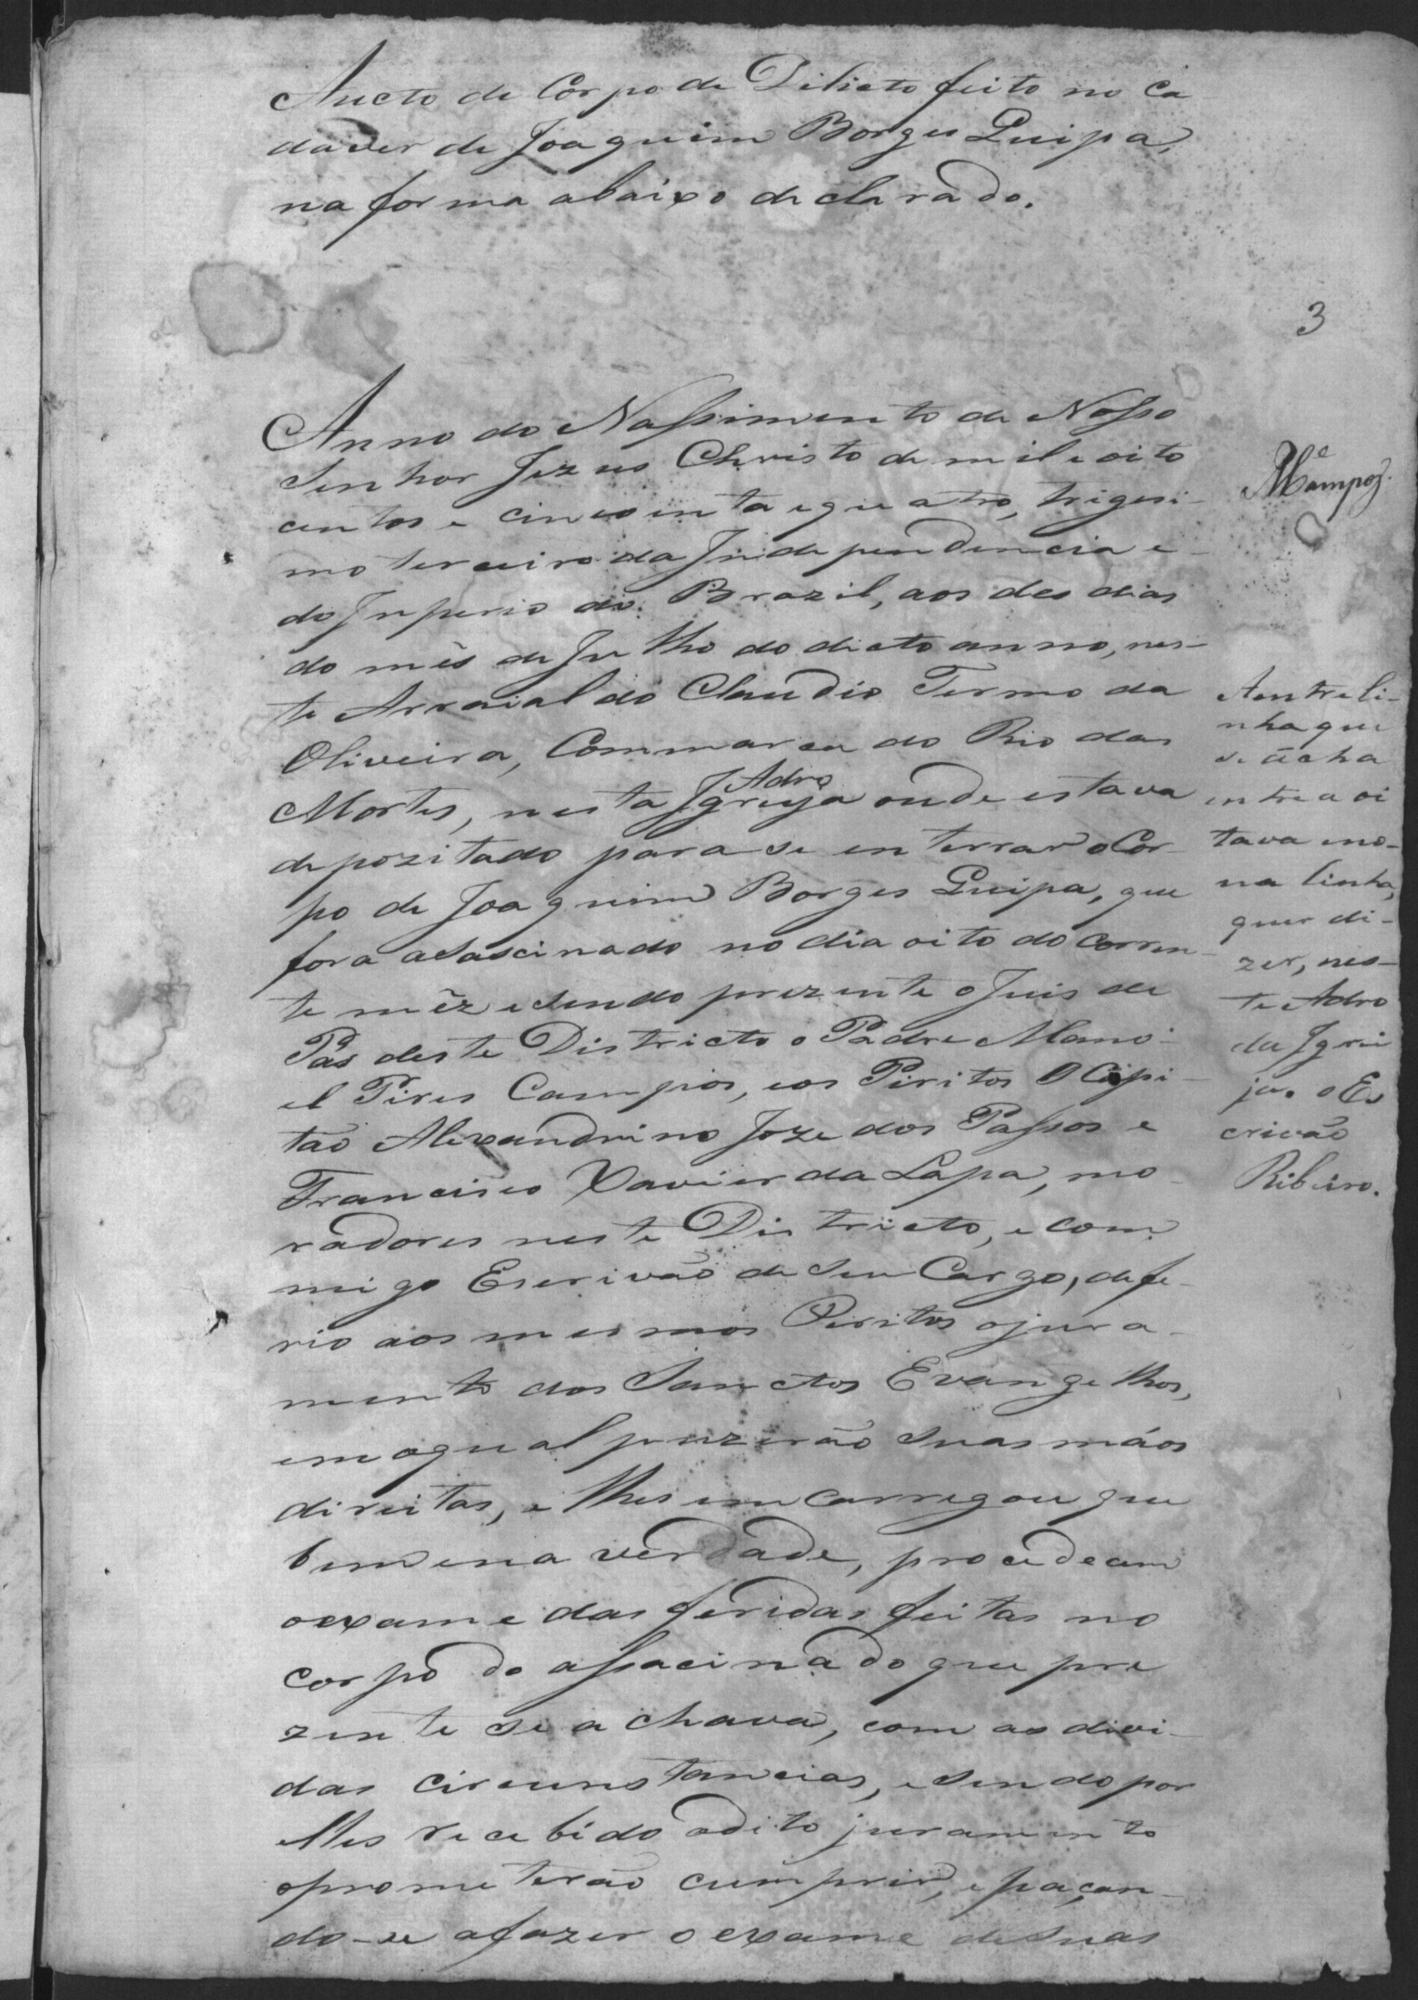 Aucto de Corpo de Dilicto feito no Ca
daver de Joaquim Borges Quipa,
na forma abaixo declarado.
3
Anno do Nassimento de Nosso
Senhor Jezus Christo de mil e oito
centos e cincoenta e quatro, trigesi-
mo terceiro da Independencia e
do Inperio do Brazil, aos des dias
do mês de Julho do dicto anno, nes-
te Arraial do Claudio Termo da
Oliveira, Commarca do Rio das
Adro
Mortes, nesta Igreja onde estava
depozitado para se enterrar o Cor-
po de Joaquim Borges Quipa, que
fora asascinado no dia oito do Corren-
te mêz e sendo prezente o Juis de
Pas deste Districto o Padre Mano-
el Pires Campos, e os Piritos O Capi-
tão Alexandrino Joze dos Passos e
Francisco Xavier da Lapa, mo-
radores neste Districto, e com
migo Escrivão de seu Cargo, defe-
rio aos mesmos Piritos o jura-
mento dos Sanctos Evangelhos,
em o qual puzerão suas mãos
direitas, e lhes emcarregou que
bem e na verdade, procedeam
o exame das feridas feitas no
corpo do assacinado que pre
zente se achava, com as divi-
das circunstancias, e sendo por
elles recebido o dito juramento
o prometerão cumprir, e paçan-
do-se a fazer o exame de suas
Campos.
A entreli-
nha que
se ácha
entre a oi
tava e no-
na linha,
quer di-
zer, nes-
te Adro
da Igrei
ja. o Es
crivão
Ribeiro.